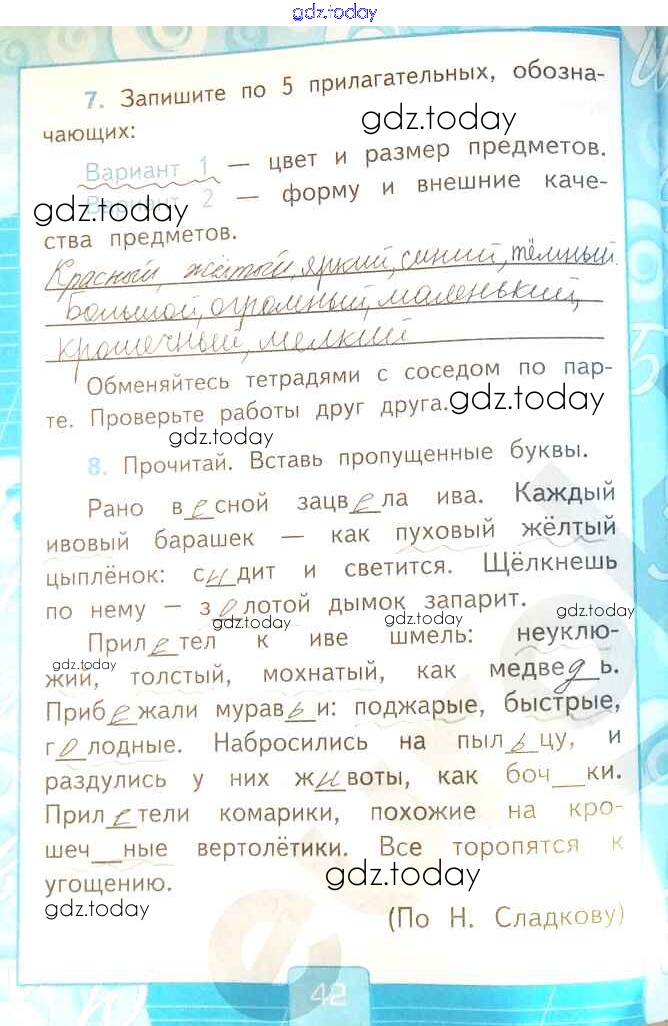 gdz.today
7. Запишите по 5 прилагательных, обозна-
чающих:
gdz.today
Вариант 1 — цвет и размер предметов.
Вариант 2 — форму и внешние каче-
gdz.today
ства предметов.
Красный, жёлтый, яркий, синий, тёмный.
Большой, огромный, маленький,
крошечный, мелкий
Обменяйтесь тетрадями с соседом по пар-
те. Проверьте работы друг друга.
gdz.today
gdz.today
8. Прочитай. Вставь пропущенные буквы.
Рано в е сной зацв е ла ива. Каждый
ивовый барашек — как пуховый жёлтый
цыплёнок: с и дит и светится. Щёлкнешь
по нему — з о лотой дымок запарит.
gdz.today gdz.today gdz.today
Прил е тел к иве шмель: неуклю-
gdz.today
жий, толстый, мохнатый, как медве д ь.
Приб е жали мурав ь и: поджарые, быстрые,
г о лодные. Набросились на пыл ь цу, и
раздулись у них ж и воты, как боч__ки.
Прил е тели комарики, похожие на кро-
шеч__ные вертолётики. Все торопятся к
угощению.
gdz.today
gdz.today
(По Н. Сладкову)
42